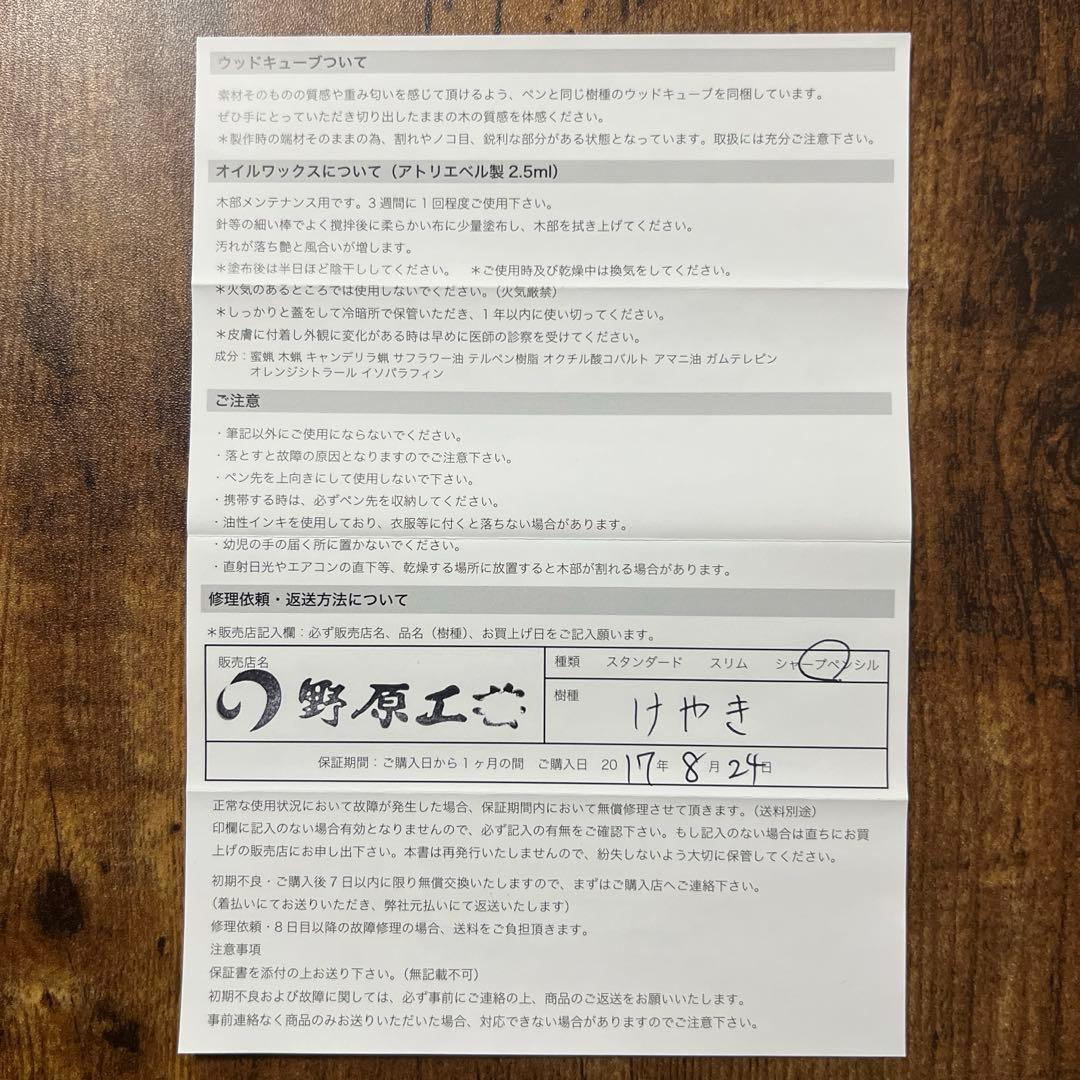 ウッドキューブついて
素材そのものの質感や重み匂いを感じて頂けるよう、ペンと同じ樹種のウッドキューブを同梱しています。
ぜひ手にとっていただき切り出したままの木の質感を体感ください。
＊製作時の端材そのままの為、割れやノコ目、鋭利な部分がある状態となっています。取扱には充分ご注意下さい。
オイルワックスについて（アトリエベル製 2.5ml）
木部メンテナンス用です。3週間に1回程度ご使用下さい。
針等の細い棒でよく撹拌後に柔らかい布に少量塗布し、木部を拭き上げてください。
汚れが落ち艶と風合いが増します。
＊塗布後は半日ほど陰干ししてください。　＊ご使用時及び乾燥中は換気をしてください。
＊火気のあるところでは使用しないでください。（火気厳禁）
＊しっかりと蓋をして冷暗所で保管いただき、1年以内に使い切ってください。
＊皮膚に付着し外観に変化がある時は早めに医師の診察を受けてください。
成分：蜜蝋 木蝋 キャンデリラ蝋 サフラワー油 テルペン樹脂 オクチル酸コバルト アマニ油 ガムテレピン
オレンジシトラール イソパラフィン
ご注意
・筆記以外にご使用にならないでください。
・落とすと故障の原因となりますのでご注意下さい。
・ペン先を上向きにして使用しないで下さい。
・携帯する時は、必ずペン先を収納してください。
・油性インキを使用しており、衣服等に付くと落ちない場合があります。
・幼児の手の届く所に置かないでください。
・直射日光やエアコンの直下等、乾燥する場所に放置すると木部が割れる場合があります。
修理依頼・返送方法について
＊販売店記入欄：必ず販売店名、品名（樹種）、お買上げ日をご記入願います。
販売店名
野原工芸
種類　スタンダード　スリム　シャープペンシル
樹種　けやき
保証期間：ご購入日から1ヶ月の間　ご購入日　2017年 8月 24日
正常な使用状況において故障が発生した場合、保証期間内において無償修理させて頂きます。（送料別途）
印欄に記入のない場合有効となりませんので、必ず記入の有無をご確認下さい。もし記入のない場合は直ちにお買
上げの販売店にお申し出下さい。本書は再発行いたしませんので、紛失しないよう大切に保管してください。
初期不良・ご購入後7日以内に限り無償交換いたしますので、まずはご購入店へご連絡下さい。
（着払いにてお送りいただき、弊社元払いにて返送いたします）
修理依頼・8日目以降の故障修理の場合、送料をご負担頂きます。
注意事項
保証書を添付の上お送り下さい。（無記載不可）
初期不良および故障に関しては、必ず事前にご連絡の上、商品のご返送をお願いいたします。
事前連絡なく商品のみお送りいただいた場合、対応できない場合がありますのでご注意下さい。